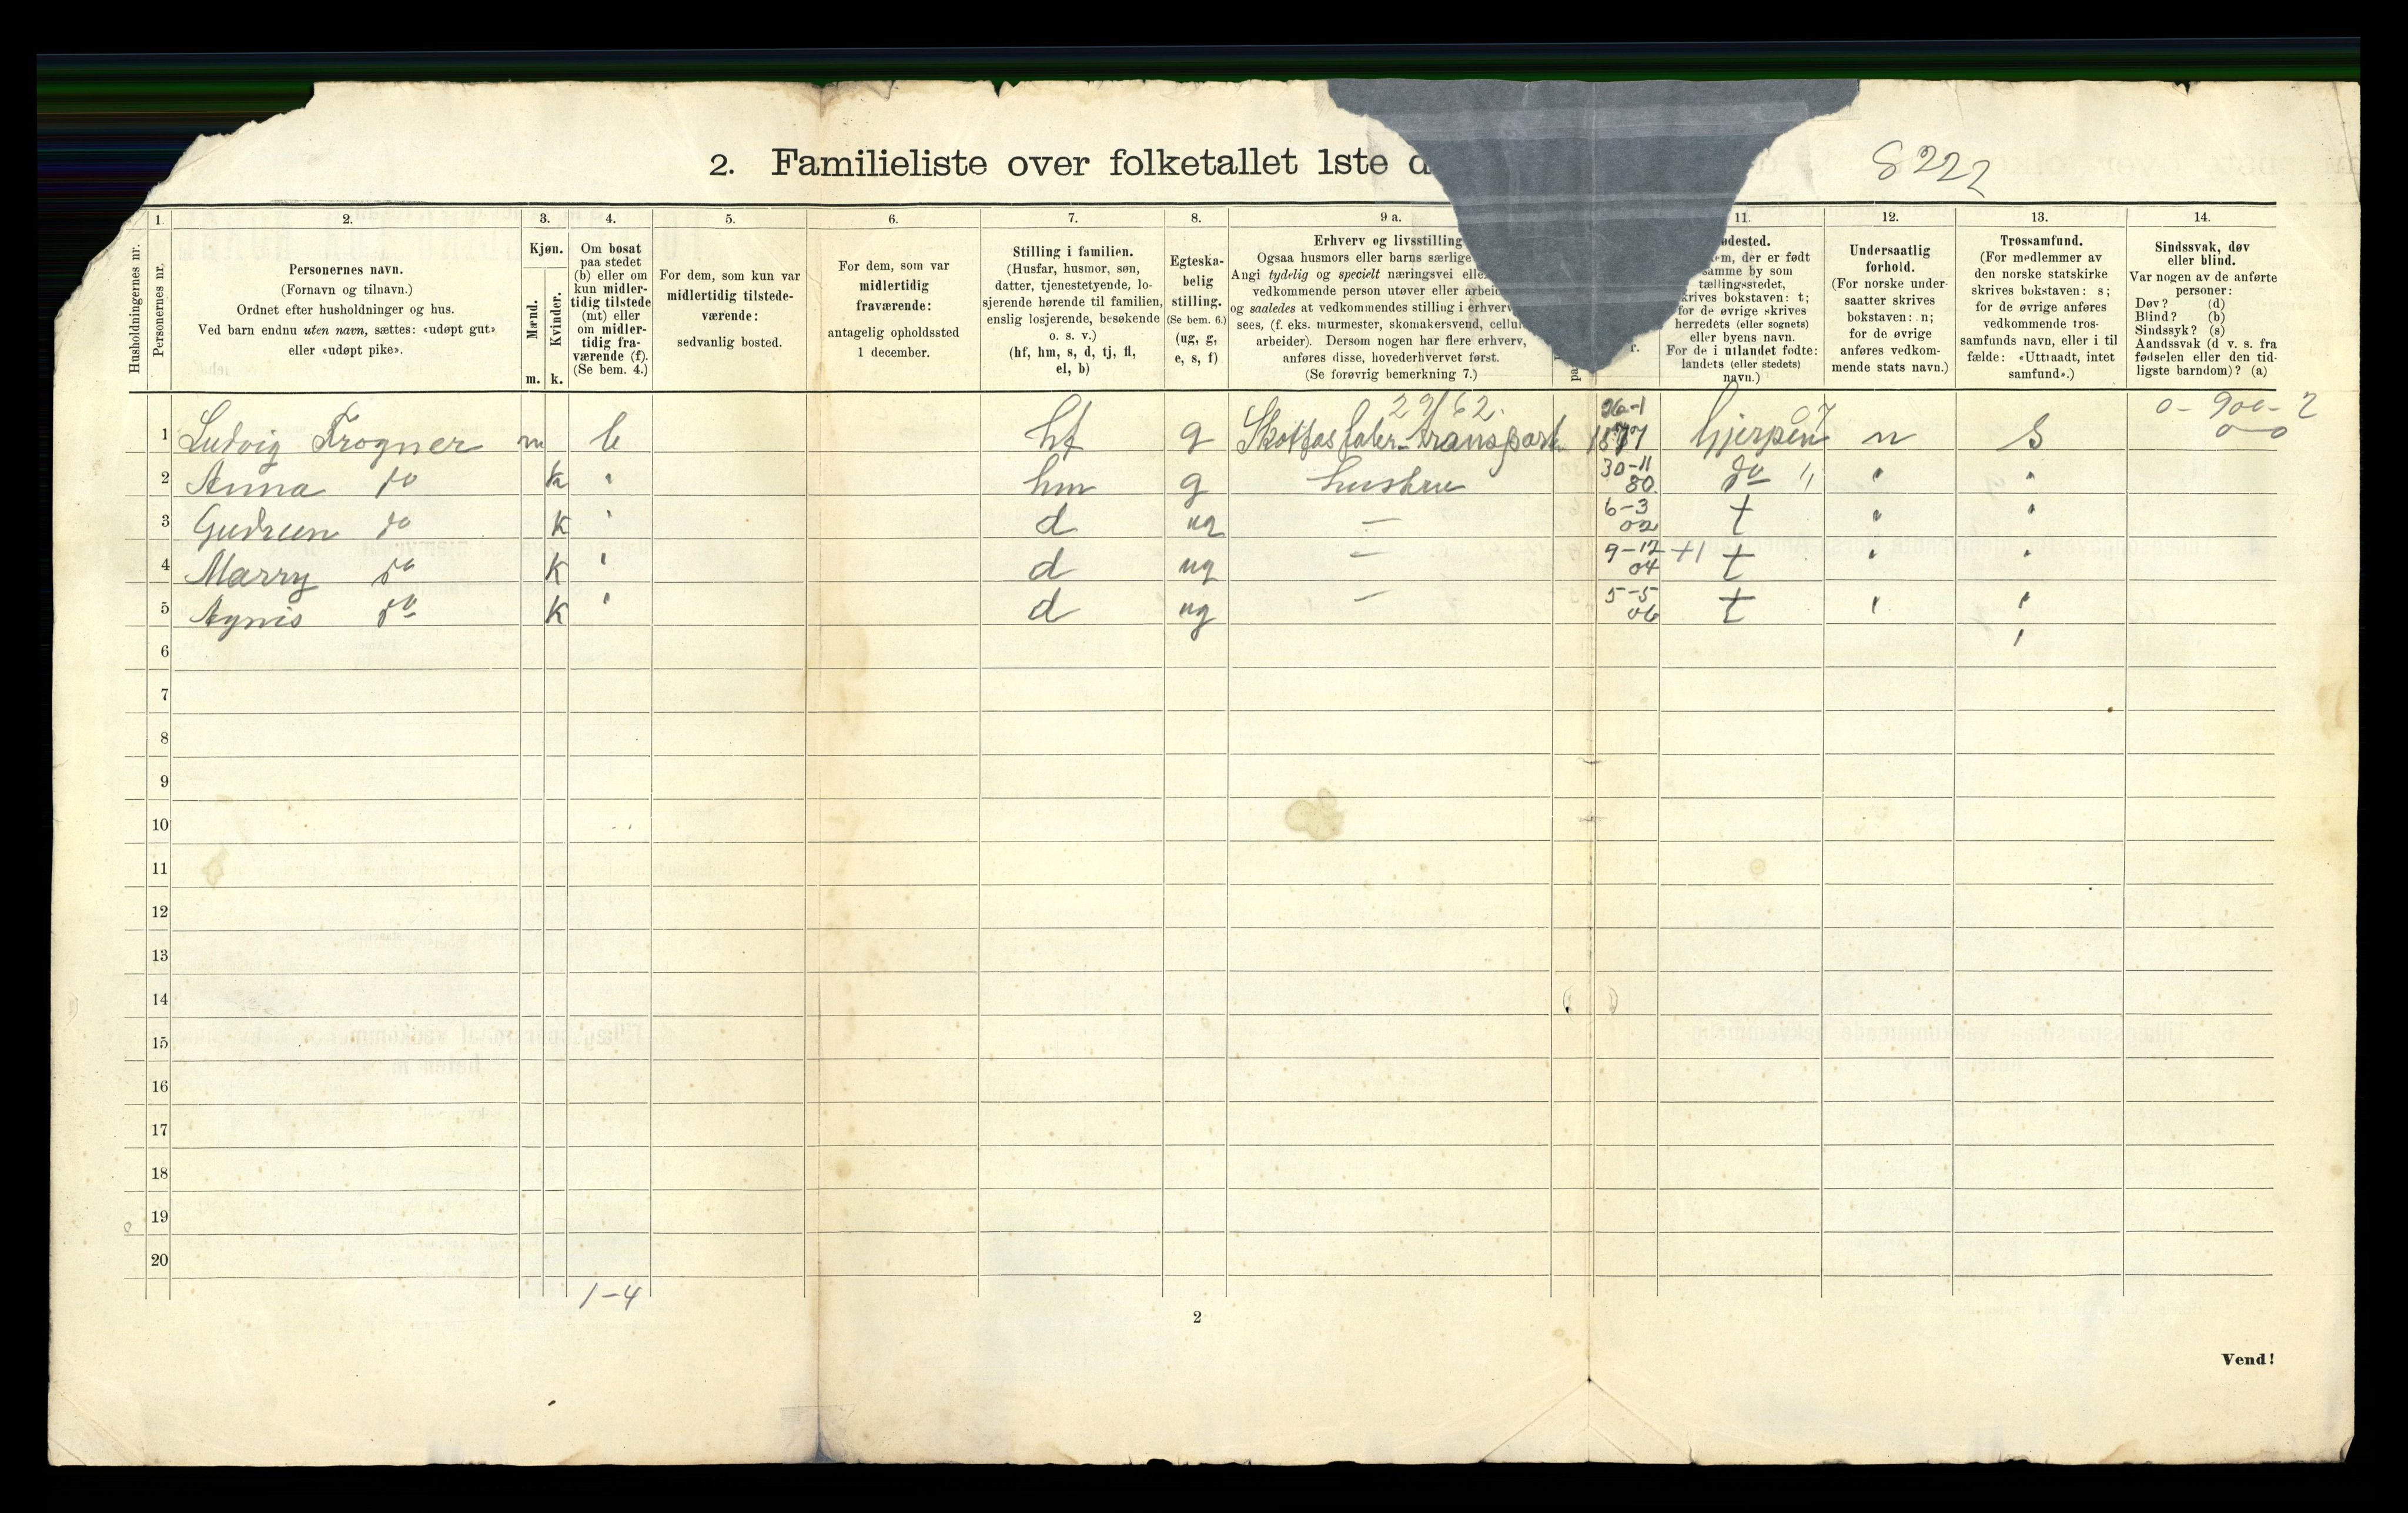 2. Familieliste over folketallet 1ste d
8222
1. 2. 3. 4. 5. 6. 7. 8. 9 a. 11. 12. 13. 14.
Husholdningernes nr.
Personernes nr.
Personernes navn.
(Fornavn og tilnavn.)
Ordnet efter husholdninger og hus.
Ved barn endnu uten navn, sættes: «udøpt gut»
eller «udøpt pike».
Kjøn.
Mænd.
Kvinder.
m. k.
Om bosat
paa stedet
(b) eller om
kun midler-
tidig tilstede
(mt) eller
om midler-
tidig fra-
værende (f).
(Se bem. 4.)
For dem, som kun var
midlertidig tilstede-
værende:
sedvanlig bosted.
For dem, som var
midlertidig
fraværende:
antagelig opholdssted
1 december.
Stilling i familien.
(Husfar, husmor, søn,
datter, tjenestetyende, lo-
sjerende hørende til familien,
enslig losjerende, besøkende
o. s. v.)
(hf, hm, s, d, tj, fl,
el, b)
Egteska-
belig
stilling.
(Se bem. 6.)
(ug, g,
e, s, f)
Erhverv og livsstilling
Ogsaa husmors eller barns særlige
Angi tydelig og specielt næringsvei elle
vedkommende person utøver eller arbei
og saaledes at vedkommendes stilling i erhverv
sees, (f. eks. murmester, skomakersvend, cellul
arbeider). Dersom nogen har flere erhverv,
anføres disse, hovederhvervet først.
(Se forøvrig bemerkning 7.)
pa
r.
ødested.
em, der er født
samme by som
tællingsstedet,
krives bokstaven: t;
for de øvrige skrives
herredets (eller sognets)
eller byens navn.
For de i utlandet fødte:
landets (eller stedets)
navn.)
Undersaatlig
forhold.
(For norske under-
saatter skrives
bokstaven: n;
for de øvrige
anføres vedkom-
mende stats navn.)
Trossamfund.
(For medlemmer av
den norske statskirke
skrives bokstaven: s;
for de øvrige anføres
vedkommende tros-
samfunds navn, eller i til
fælde: «Uttraadt, intet
samfund».)
Sindssvak, døv
eller blind.
Var nogen av de anførte
personer:
Døv? (d)
Blind? (b)
Sindssyk? (s)
Aandssvak (d v. s. fra
fødselen eller den tid-
ligste barndom)? (a)
29/62. 26-1 07 0-900-2
1 Ludvig Trogner m b hf g Skotfos faber. transport 1877 Gjerpen n S 0-0
2 Anna do k " hm g hustru 30-11 80. do " " "
3 Gudrun do k " d ug — 6-3 02 t " "
4 Marry do k " d ug — 9-12 04 +1 t " "
5 Agnis do k " d ug — 5-5 06 t " "
6 "
7
8
9
10
11
12
13
14
15
16
17
18
19
20
1-4
2
Vend!